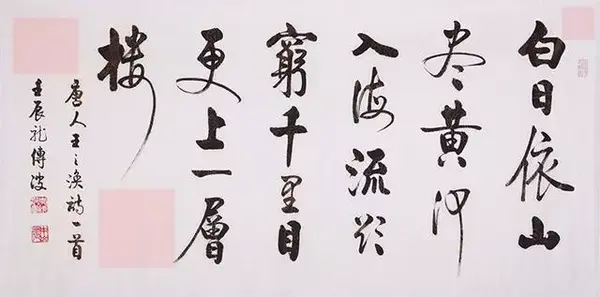 白日依山
尽黄河
入海流欲
窮千里目
更上一層
楼
唐人王之渙詩一首
壬辰